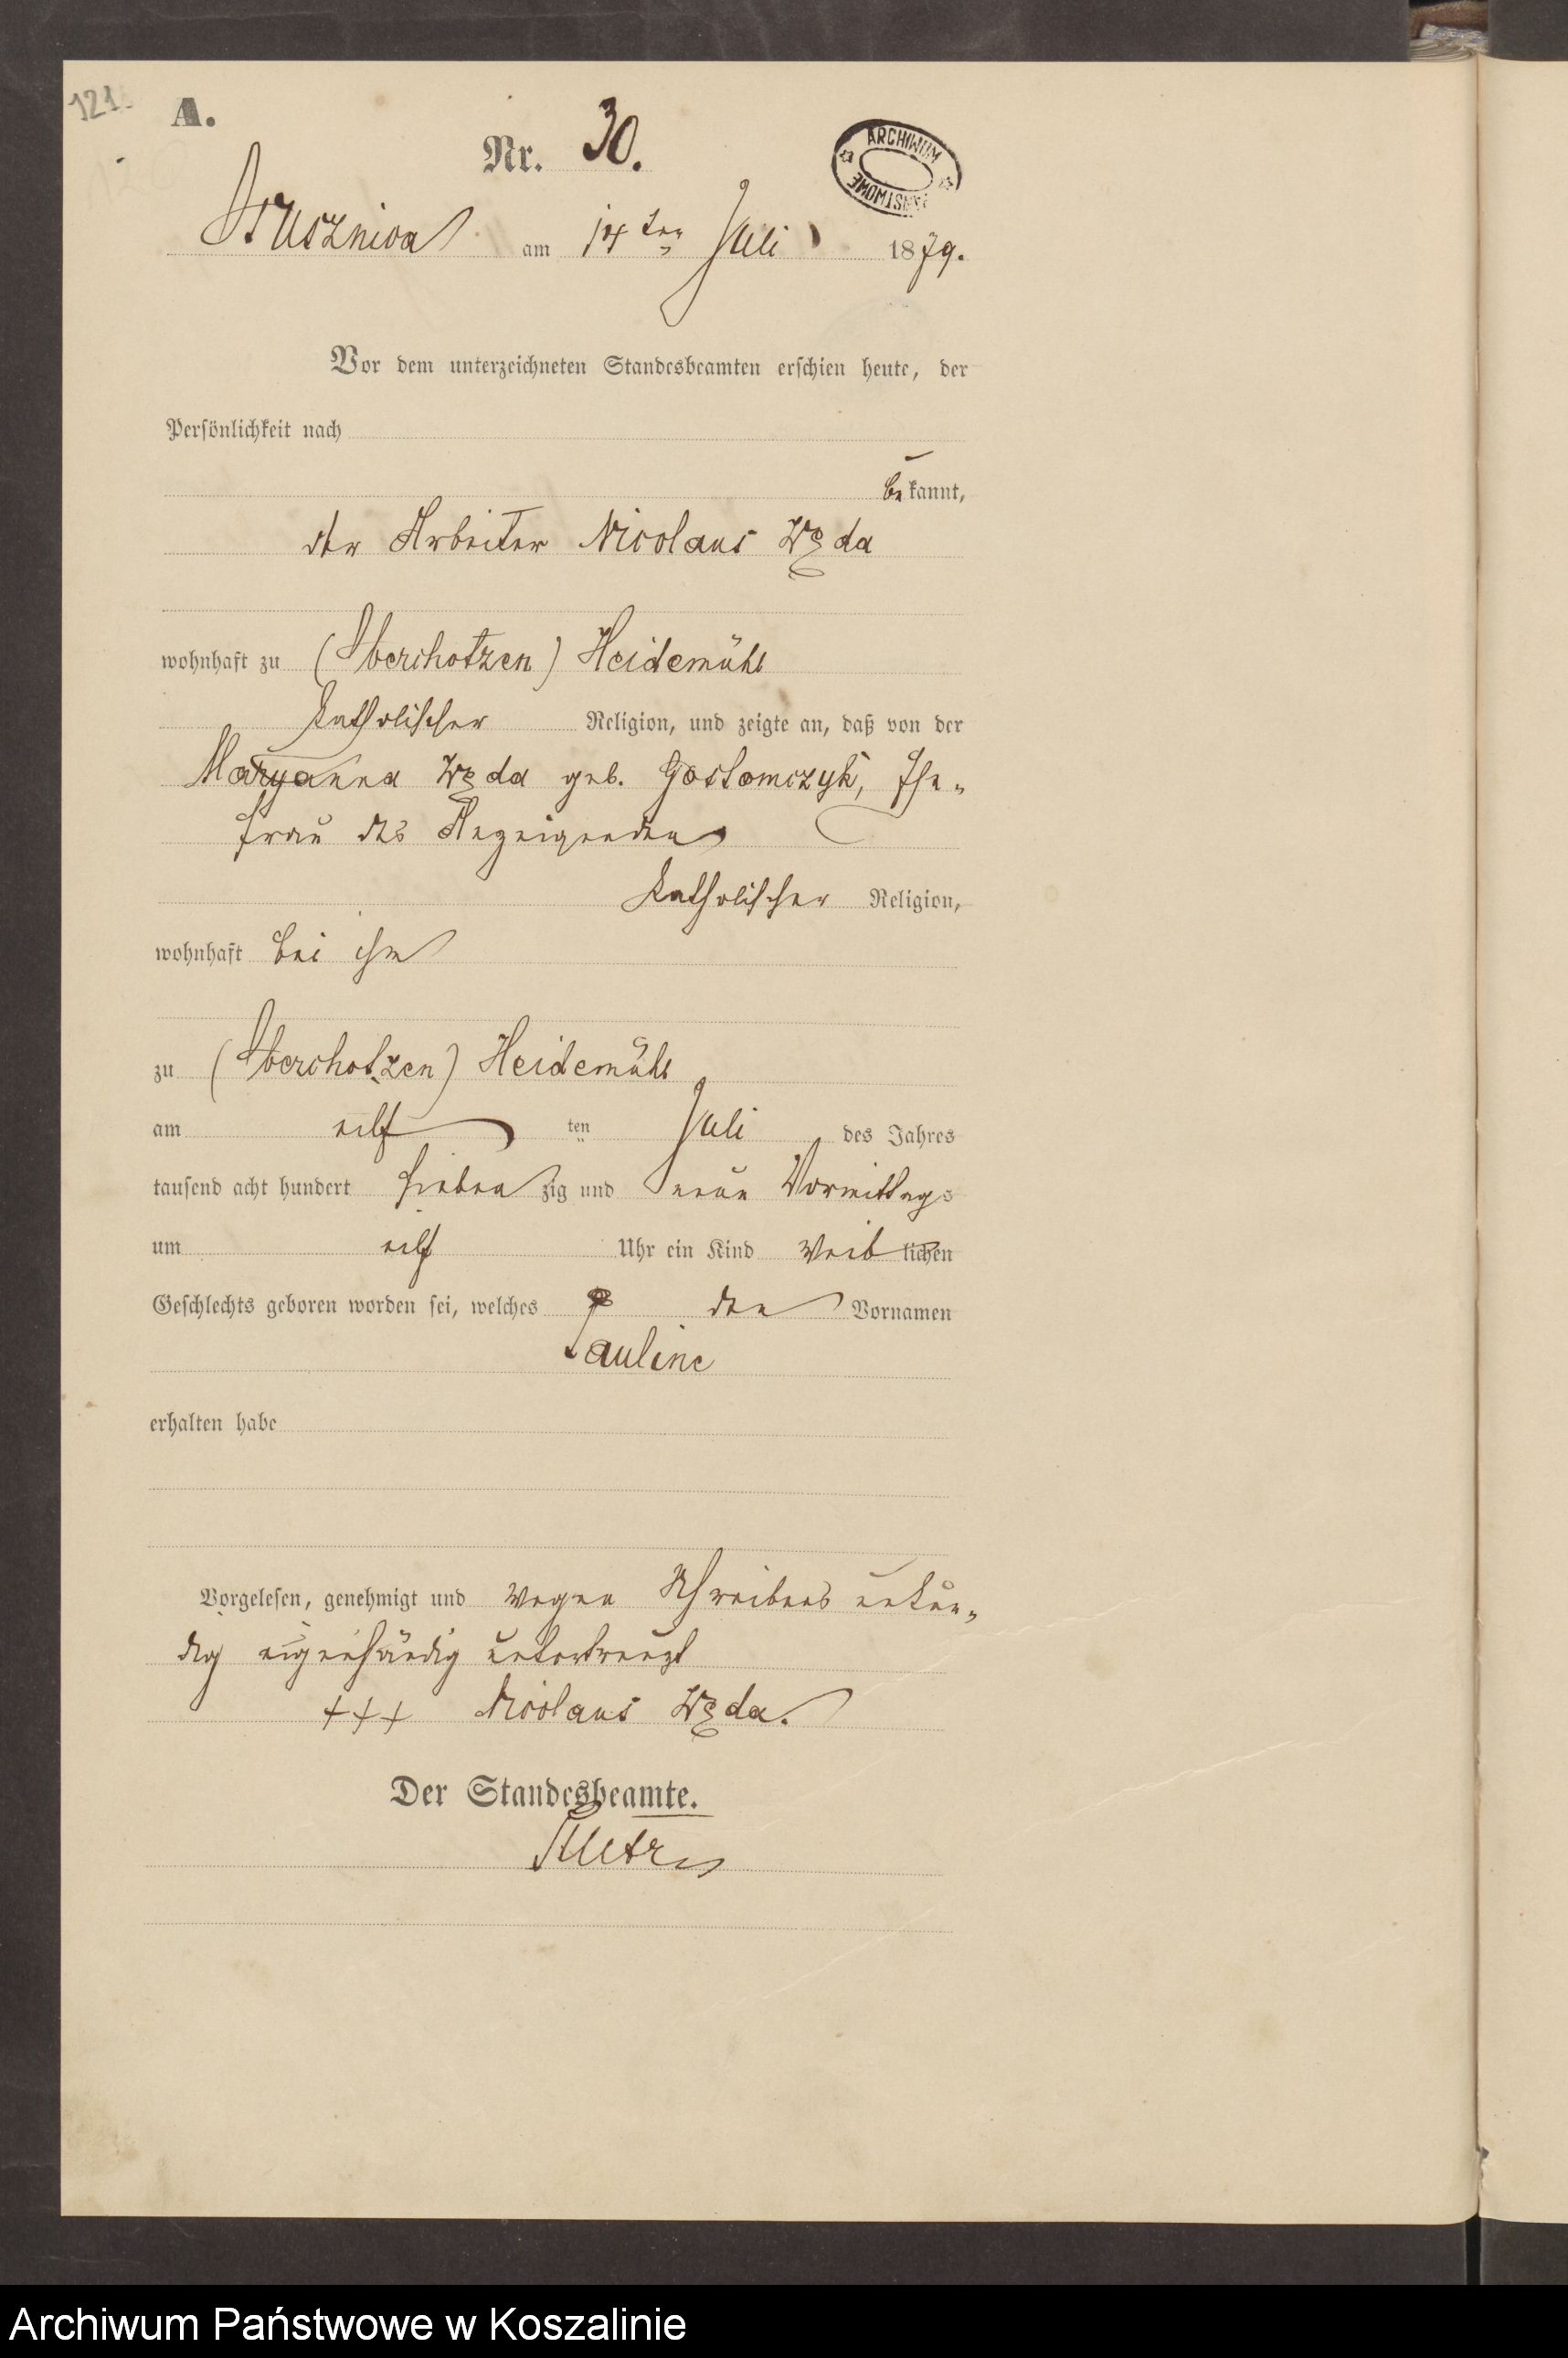 121.
A.
Nr. 30.
ARCHIWUM PAŃSTWOWE
am 14ten Juli 1879.
Vor dem unterzeichneten Standesbeamten erschien heute, der
Persönlichkeit nach
bekannt,
der Arbeiter Nicolaus Węda
wohnhaft zu (Aberchotzen) Heidemühl
katholischer Religion, und zeigte an, daß von der
Maryanna Węda geb. Gostomczyk, Ehe-
frau des Anzeigenden
katholischer Religion,
wohnhaft bei ihm
zu (Aberchotzen) Heidemühl
am eilf ten Juli des Jahres
tausend acht hundert sieben zig und neun Vormittags
um eilf Uhr ein Kind weiblichen
Geschlechts geboren worden sei, welches den Vornamen
Pauline
erhalten habe
Vorgelesen, genehmigt und wegen Schreibens unkun-
dig eigenhändig unterkreuzt
+++ Nicolaus Węda.
Der Standesbeamte.
Archiwum Państwowe w Koszalinie